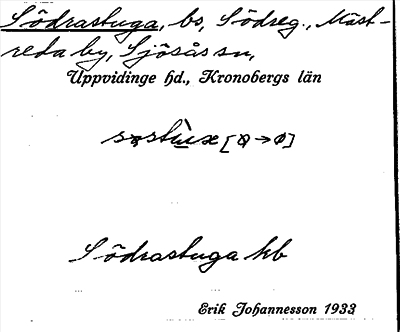 Södrastuga, bs, Södreg., Mäst-
reda by, Sjösås sn,
Uppvidinge hd., Kronobergs län
Södrastuga hb
Erik Johannesson 1933